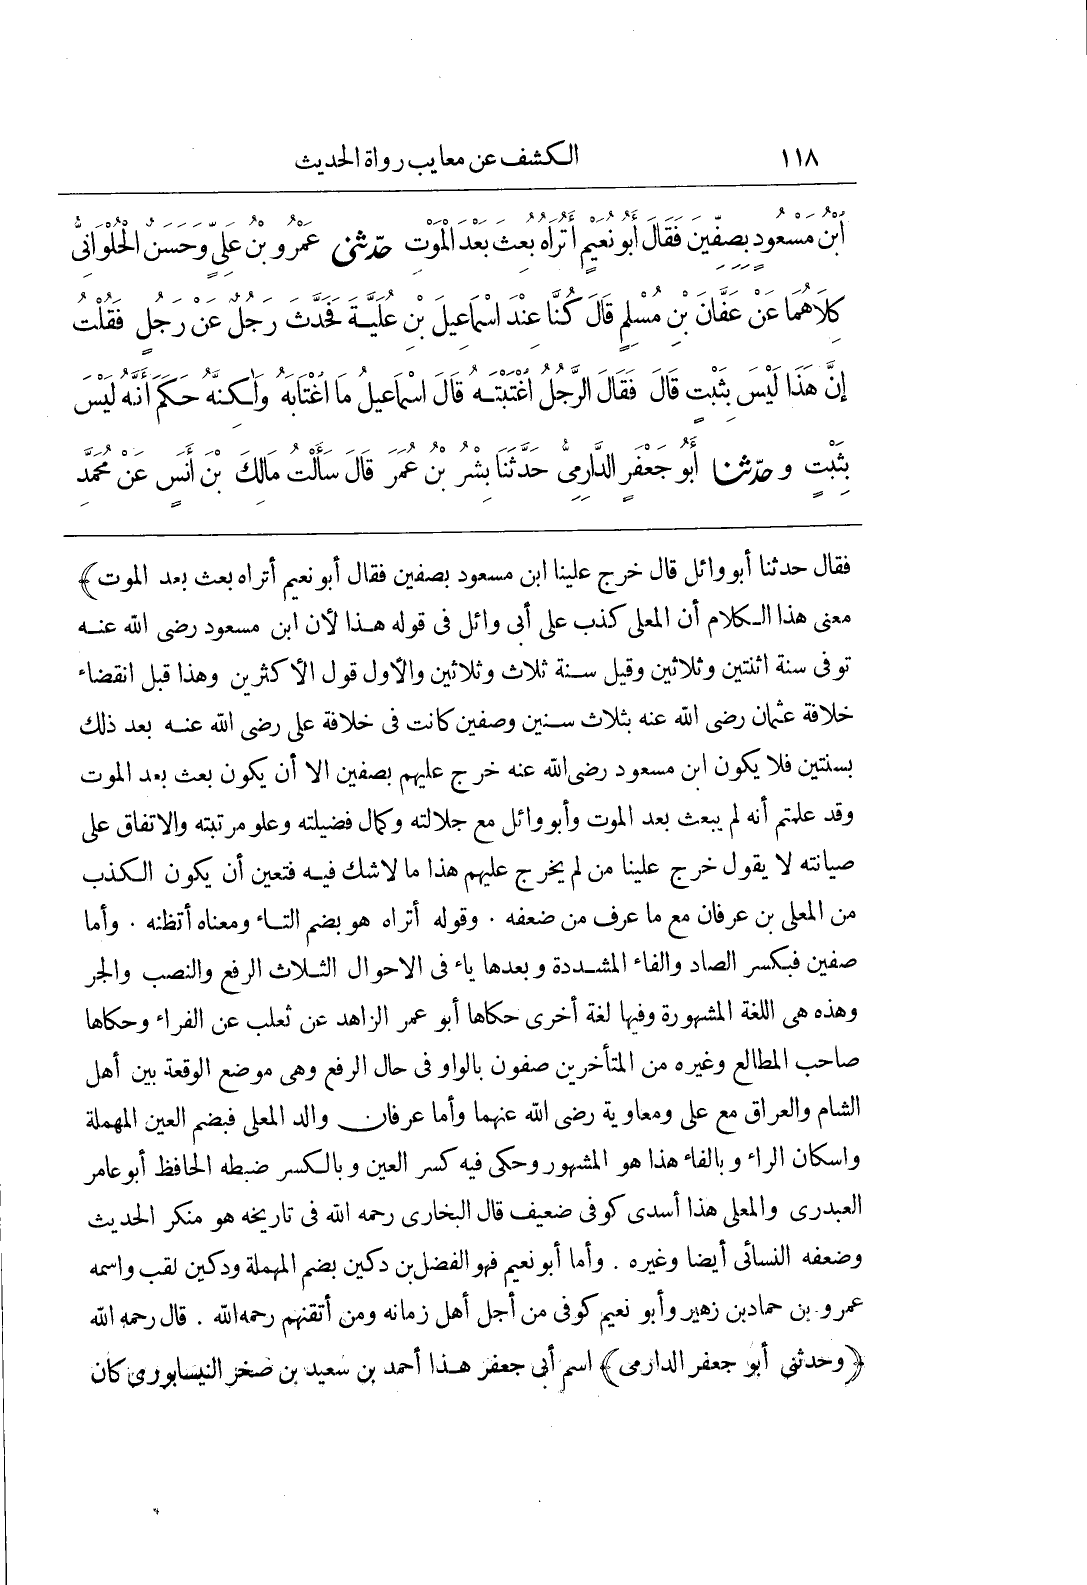 ١١٨ الكشف عن معايب رواة الحديث
ابْنُ مَسْعُودٍ بِصِفِّينَ فَقَالَ أَبُو نُعَيْمٍ أَتُرَاهُ بُعِثَ بَعْدَ الْمَوْتِ حدّثنى عَمْرُو بْنُ عَلِيٍّ وَحَسَنٌ الْحُلْوَانِيُّ
كِلَاهُمَا عَنْ عَفَّانَ بْنِ مُسْلِمٍ قَالَ كُنَّا عِنْدَ اسْمَاعِيلَ بْنِ عُلَيَّةَ فَحَدَّثَ رَجُلٌ عَنْ رَجُلٍ فَقُلْتُ
إِنَّ هَذَا لَيْسَ بِثَبْتٍ قَالَ فَقَالَ الرَّجُلُ اغْتَبْتَهُ قَالَ اسْمَاعِيلُ مَا اغْتَابَهُ وَلٰكِنَّهُ حَكَمَ أَنَّهُ لَيْسَ
بِثَبْتٍ و حدّثنا أَبُو جَعْفَرٍ الدَّارِمِىُّ حَدَّثَنَا بِشْرُ بْنُ عُمَرَ قَالَ سَأَلْتُ مَالِكَ بْنَ أَنَسٍ عَنْ مُحَمَّدِ
فقال حدثنا أبو وائل قال خرج علينا ابن مسعود بصفين فقال أبو نعيم أتراه بعث بعد الموت﴾
معنى هذا الكلام أن المعلى كذب على أبى وائل فى قوله هذا لأن ابن مسعود رضى الله عنه
توفى سنة اثنتين وثلاثين وقيل سنة ثلاث وثلاثين والأول قول الأكثرين وهذا قبل انقضاء
خلافة عثمان رضى الله عنه بثلاث سنين وصفين كانت فى خلافة على رضى الله عنه بعد ذلك
بسنتين فلا يكون ابن مسعود رضى الله عنه خرج عليهم بصفين الا أن يكون بعث بعد الموت
وقد علمتم أنه لم يبعث بعد الموت وأبو وائل مع جلالته وكمال فضيلته وعلو مرتبته والاتفاق على
صيانته لا يقول خرج علينا من لم يخرج عليهم هذا ما لاشك فيه فتعين أن يكون الكذب
من المعلى بن عرفان مع ما عرف من ضعفه . وقوله أتراه هو بضم التاء ومعناه أتظنه . وأما
صفين فبكسر الصاد والفاء المشددة وبعدها ياء فى الاحوال الثلاث الرفع والنصب والجر
وهذه هى اللغة المشهورة وفيها لغة أخرى حكاها أبو عمر الزاهد عن ثعلب عن الفراء وحكاها
صاحب المطالع وغيره من المتأخرين صفون بالواو فى حال الرفع وهى موضع الوقعة بين أهل
الشام والعراق مع على ومعاوية رضى الله عنهما وأما عرفان والد المعلى فبضم العين المهملة
واسكان الراء وبالفاء هذا هو المشهور وحكى فيه كسر العين وبالكسر ضبطه الحافظ أبو عامر
العبدرى والمعلى هذا أسدى كوفى ضعيف قال البخارى رحمه الله فى تاريخه هو منكر الحديث
وضعفه النسائى أيضا وغيره . وأما أبو نعيم فهو الفضل بن دكين بضم المهملة ودكين لقب واسمه
عمرو بن حماد بن زهير وأبو نعيم كوفى من أجل أهل زمانه ومن أتقنهم رحمه الله . قال رحمه الله
﴿وحدثنى أبو جعفر الدارمى﴾ اسم أبى جعفر هذا أحمد بن سعيد بن صخر النيسابورى كان